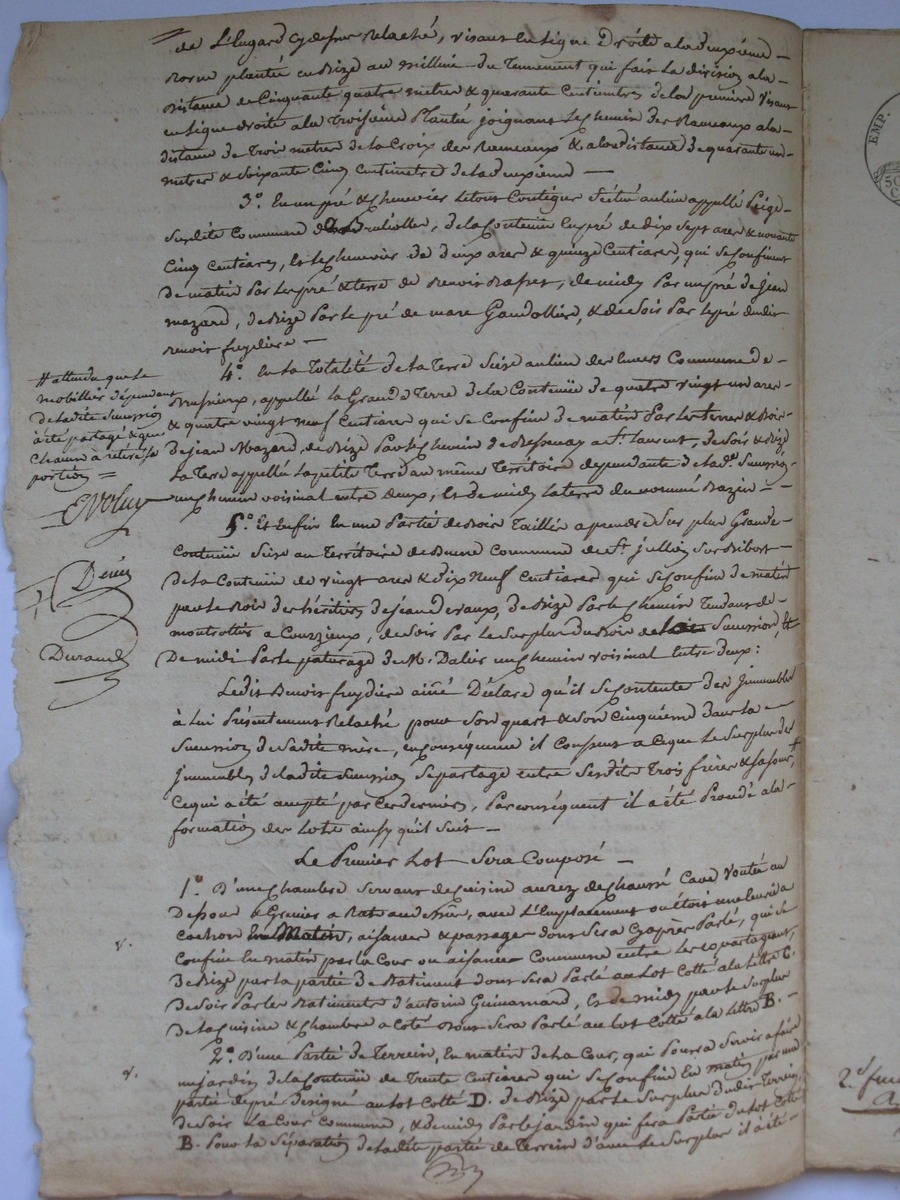 de L'hugard cy dessus Relaché, visant en Ligne Droite a la deuxieme
Borne plantée en Bize au millieu du Tennement qui fait la division a la
distance de Cinquante quatre metres & quarante Centimetres de la premiere visant
en Ligne droite a la Troisieme Plantée joignant le chemin des Rameaux a la
distance de Trois metres de la Croix des Rameaux & a la distance de quarante un
metres & soixante Cinq Centimetres de la deuxieme
3.° En un pré & chenevier le tout Contigue situé au lieu appellé Liège
susdite Commune de Brullioles, de la Contenüe en pré de dix sept ares & nonante
Cinq Centiares, et le chenevier de deux ares & quinze Centiares, qui se Confinent
de matin Par les pré & terre de Benoit , de midy Par un pré de jean
mazard, de Bize Par le pré de marc Gaudollier, & de soir Par le pré dudit
benoit freydiere
4.° En la Totalité de la Terre Sise au lieu des Envers Commune de
Brussieux, appellé la Grand Terre de la Contenüe de quatre vingt un ares
& quatre vingt neuf Centiares qui se Confine de matin Par les terres & Bois
de jean Mazard, de Bize Par le chemin de Bessenay a St. Laurent, de soir & Bize
La Terre appellé La petite Terre au même Territoire dependante de lade. Succession
un chemin voisinal entre deux, et de midy la terre du nommé Bazin
5.° Et Enfin En une Partie de Bois Taillée a prendre sur plus Grande
Contenüe Sise au Territoire de Commune de St. jullien sur Bibost
de la Contenüe de vingt ares & dix Neuf Centiares qui se Confine de matin
par le Bois des héritiers de jean devaux, de Bize Par le chemin Tendant de
montrottier a Courzieux, de soir Par le surplus du Bois de la Succession, Et
De midi Par le paturage de M. Dalier un chemin voisinal Entre deux:
Ledit Benoit freydiere ainé Déclare qu'il se Contente des Immeubles
à Lui Présentement Relaché pour son quart & son Cinquieme dans la
succession de sadite mère, en conséquence il consent a ce que le surplus des
immeubles de ladite succession se partage entre sesdits Trois frères & sa sœur, #
ce qui a été accepté par ces derniers, Par conséquent il a été Procédé a la
formation des Lots ainsy qu'il suit
Le Premier Lot Sera Composé
1.° D'une Chambre Servant de Cuisine au rez de chaussé Cave Voutée au
Dessous & Grenier a Bat au dessus, avec L'Emplacement ou étoit une Ecurie a
cochon En Matin, aisances & passage dont sera Cy après Parlé, qui se
Confine En matin par la Cour ou aisance Commune entre les copartageant,
de Bize par la partie de Batiment dont sera Parlé au Lot Cotté a la Lettre C.
De soir Par les Batiments d'antoine Guinamard, et de midy par le surplus
de la Cuisine & Chambre a Coté dont Sera Parlé au Lot Cotté a la Lettre B.
2.° D'une Partie de Terrein, En matin de la Cour, qui Pourra Servir a faire
un jardin de la Contenüe de Trente Centiares qui se Confine En matin par une
partie de pré désigné au Lot Cotté D. de Bize par le surplus dudit Terrein,
de soir La Cour Commune, & de midy Par le jardin qui fera Partie du Lot Cotté
B. Pour la Séparation de ladite partie de Terrein d'avec le surplus il a été
# attendu que le
mobillier dépendant
de ladite Succession
à été partagé & que
chacun à retiré sa
portion
Denis
Durand
EMP.
50
C